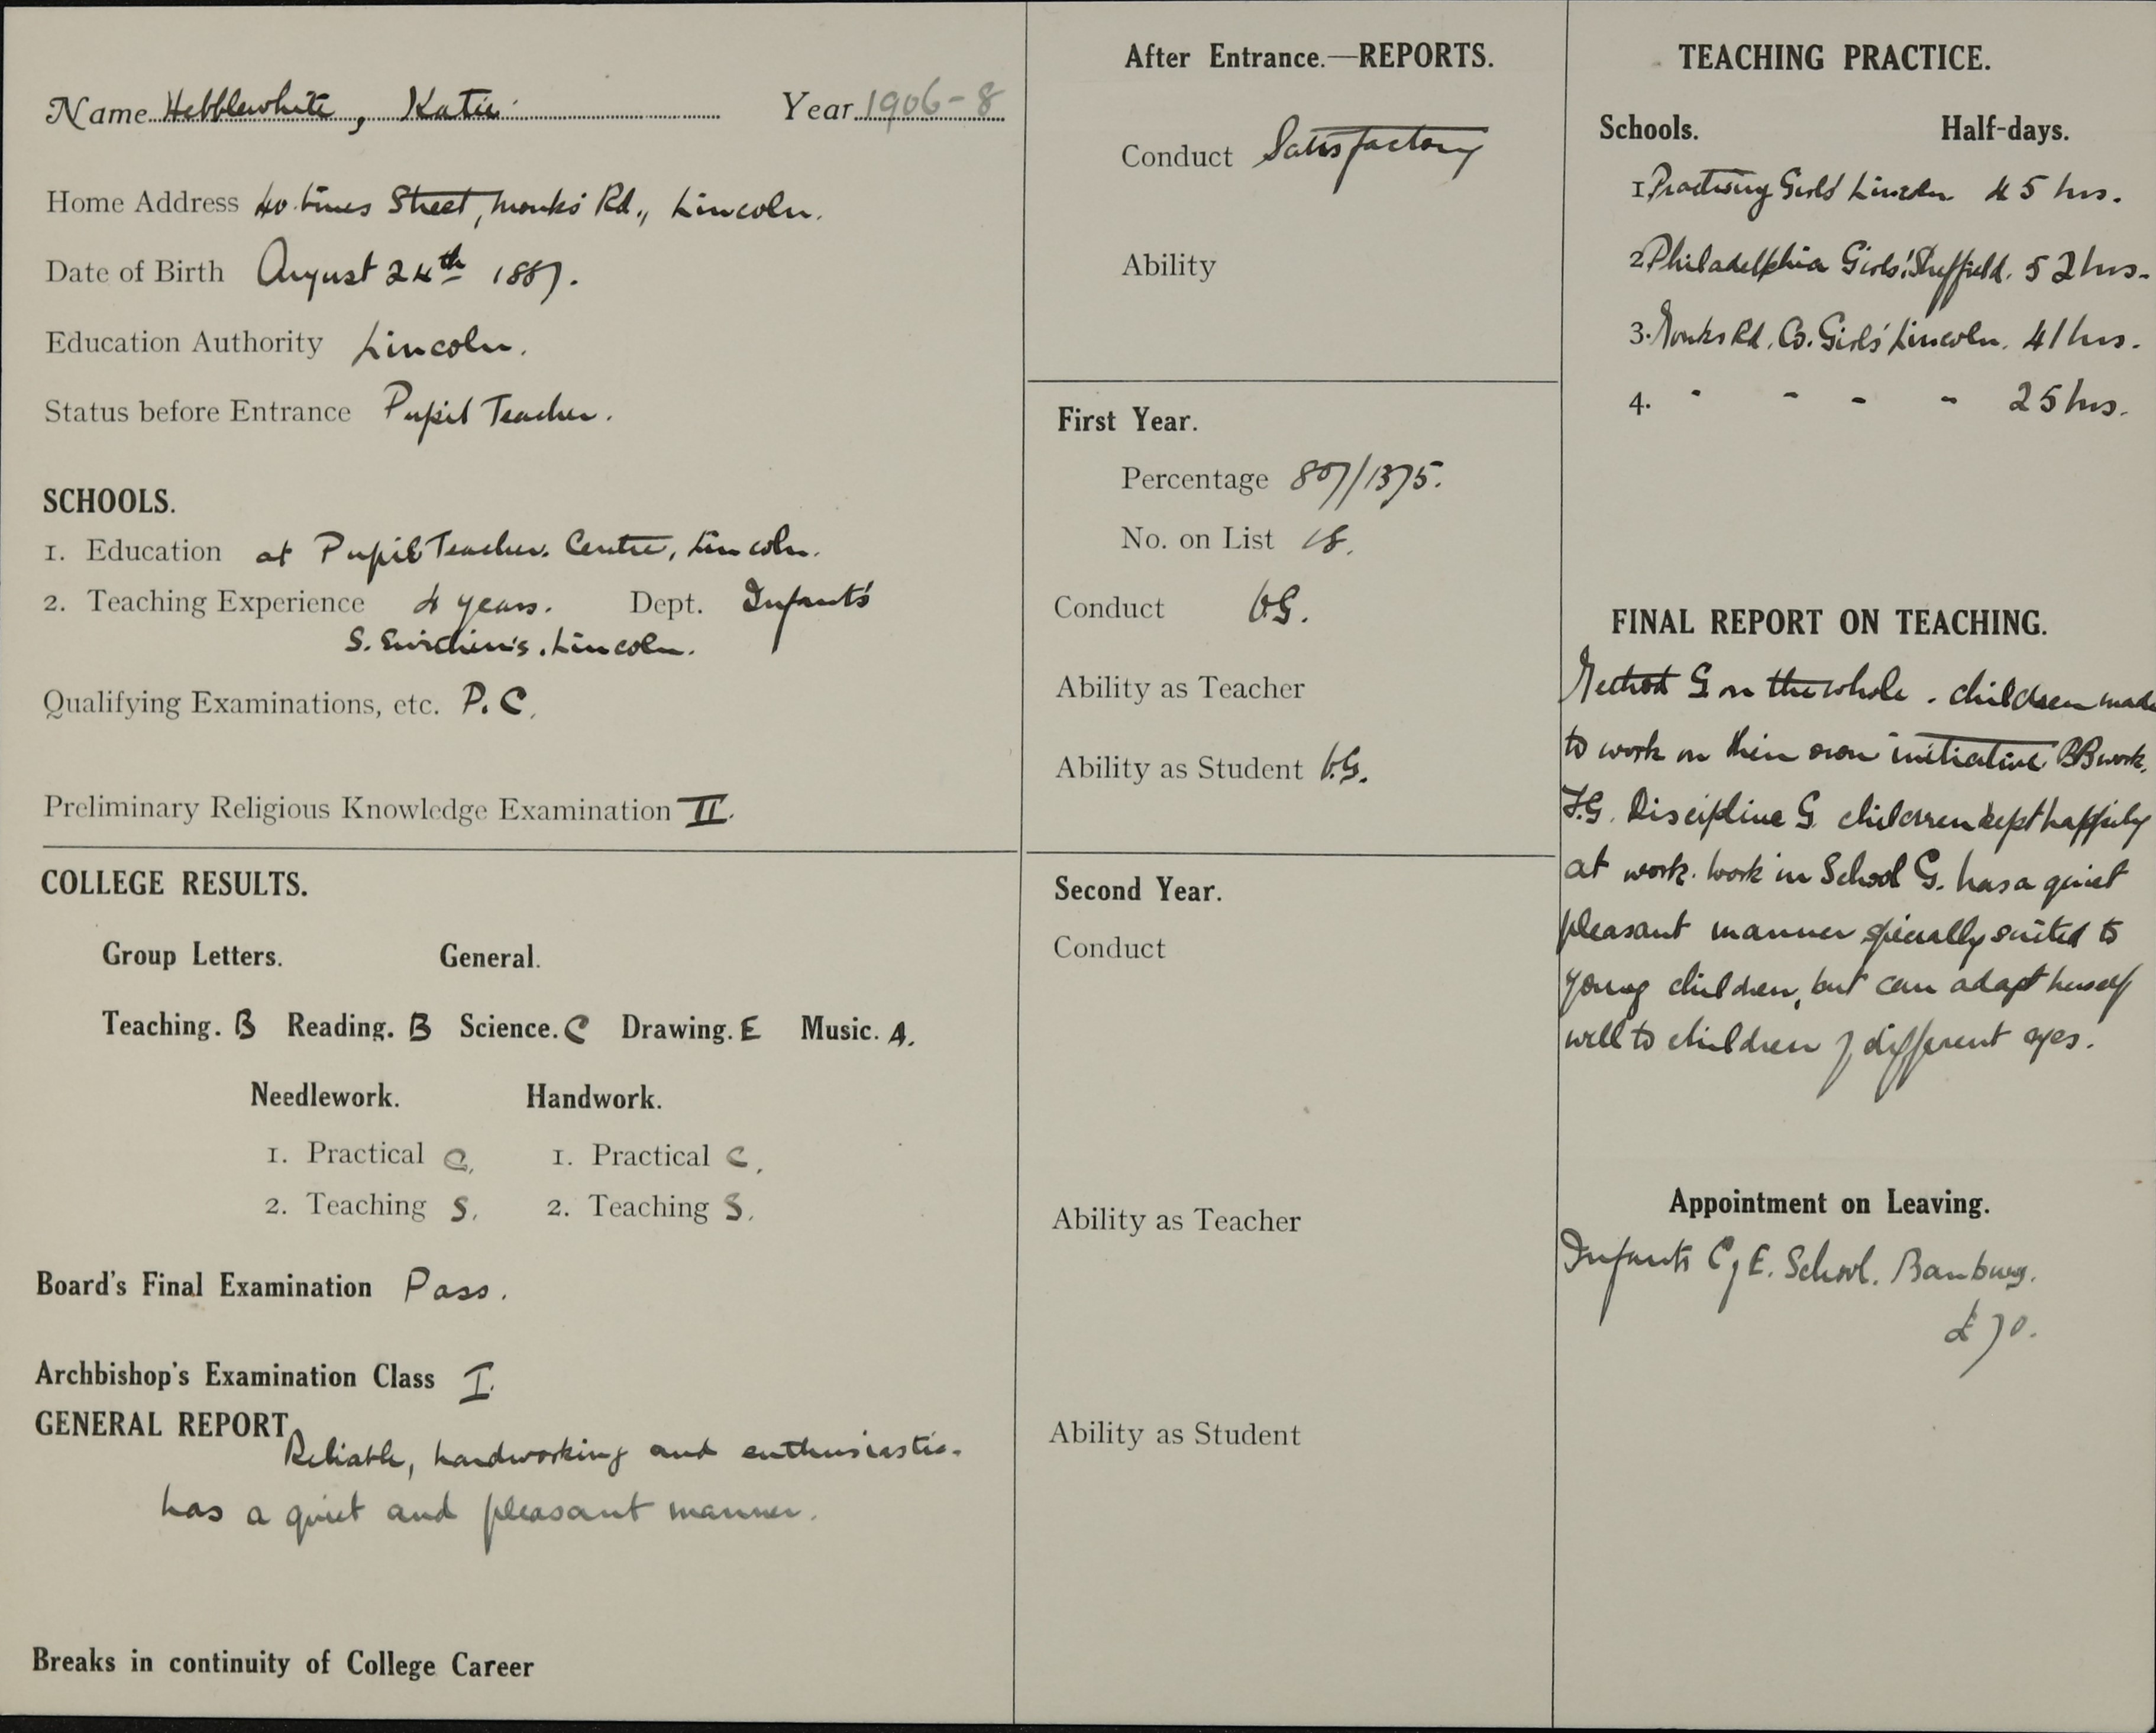 Name Hebblewhite, Katie. Year 1906-8
Home Address 40 Street, Monks' Rd., Lincoln.
Date of Birth August 24th 1887.
Education Authority Lincoln.
Status before Entrance Pupil Teacher.
SCHOOLS.
1. Education at Pupil Teacher Centre, Lincoln.
2. Teaching Experience 4 years. Dept. Infants'
S. Swithin's, Lincoln.
Qualifying Examinations, etc. P.C.
Preliminary Religious Knowledge Examination II.
COLLEGE RESULTS.
Group Letters. General.
Teaching. B Reading. B Science. C Drawing. E Music. A.
Needlework. Handwork.
1. Practical C. 1. Practical C.
2. Teaching S. 2. Teaching S.
Board's Final Examination Pass.
Archbishop's Examination Class I.
GENERAL REPORT.
Reliable, hardworking and enthusiastic.
has a quiet and pleasant manner.
Breaks in continuity of College Career
After Entrance.—REPORTS.
Conduct Satisfactory
Ability
First Year.
Percentage 807/1375.
No. on List 18.
Conduct V.G.
Ability as Teacher
Ability as Student V.G.
Second Year.
Conduct
Ability as Teacher
Ability as Student
TEACHING PRACTICE.
Schools. Half-days.
1. Practising Girls' Lincoln 45 hrs.
2. Philadelphia Girls' Sheffield. 52 hrs.
3. Monks Rd. Co. Girls' Lincoln. 41 hrs.
4. " - - - 25 hrs.
FINAL REPORT ON TEACHING.
Method G on the whole. children made
to work on their own initiative. BB work.
F.G. Discipline G. children kept happily
at work. work in School G. has a quiet
pleasant manner specially suited to
young children, but can adapt herself
well to children of different ages.
Appointment on Leaving.
Infants C of E. School. Banbury.
£70.